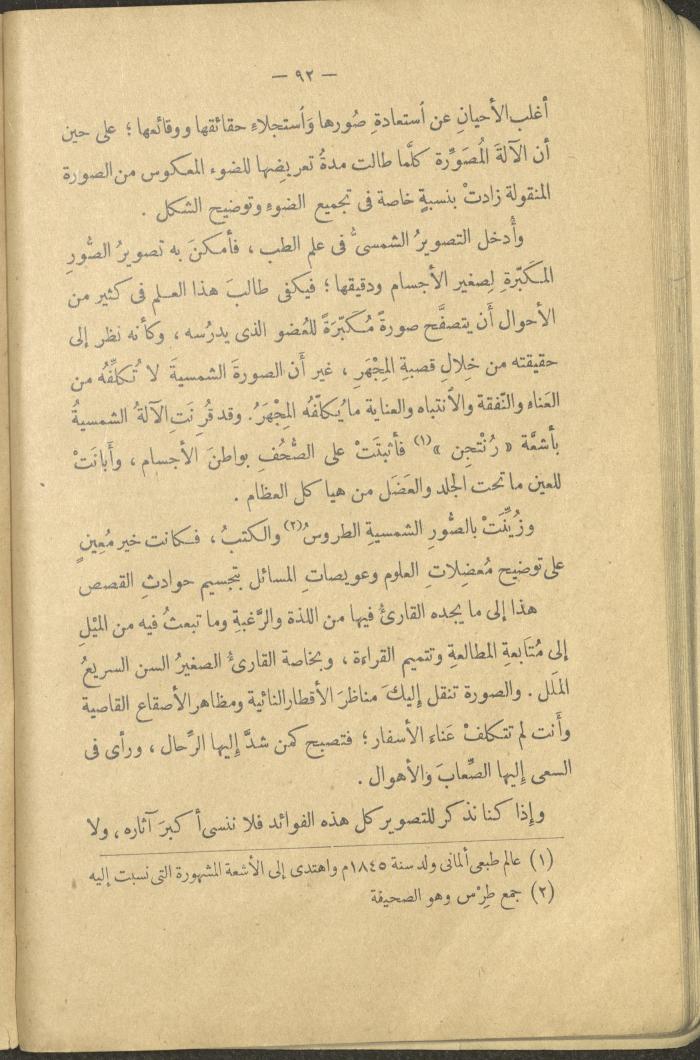 — ٩٢ —
أغلب الأحيانِ عن ٱستعادةِ صُورها وَٱستجلاءِ حقائقها ووقائعها ؛ على حين
أن الآلةَ المُصَوِّرة كلَّما طالت مدةُ تعريضِها للضوء المعكوس من الصورة
المنقولة زادتْ بنسبةٍ خاصة فى تجميع الضوءِ وتوضيح الشكل .
وأُدخل التصويرُ الشمسىُّ فى علم الطب ، فأمكنَ به تصويرُ الصُّورِ
المكَبّرةِ لِصغير الأجسام ودقيقها ؛ فيكفى طالبَ هذا العلم فى كثير من
الأحوال أَن يتصفَّح صورةً مُكَبّرَةً للعُضو الذى يدرُسه ، وكأنه نظر إلى
حقيقته من خِلالِ قصبةِ المِجْهَرِ ، غير أَن الصورةَ الشمسيةَ لا تُكلِّفُه من
العَناءِ والنّفقة والٱنتباه والعناية ما يُكلّفُه المِجْهَرُ . وقد قُرِنَتِ الآلةُ الشمسيةُ
بأشعَّة « رُنْتجِن »(١) فأثبتَتْ على الصُّحُفِ بواطنَ الأجسام ، وأَبانَتْ
للعين ما تحت الجلد والعَضَل من هيا كل العظام .
وزُيِّنَتْ بالصُّورِ الشمسيةِ الطروسُ(٢) والكتبُ ، فكانت خير مُعِينٍ
على توضيح مُعضِلاتِ العلوم وعويصاتِ المسائل بتجسيم حوادثِ القصص
هذا إلى ما يجده القارئُ فيها من اللذة والرَّغبةِ وما تبعثُ فيه من الميْلِ
إلى مُتَابعةِ المطالعةِ وتتميم القراءة ، وبخاصة القارئُ الصغيرُ السن السريعُ
المَلَل . والصورة تنقل إليكَ مناظرَ الأقطارالنائية ومظاهر الأصقاع القاصية
وأَنت لم تتكلفْ عَناء الأسفار ؛ فتصبح كمن شدَّ إليها الرِّحال ، ورأى فى
السعى إليها الصِّعابَ وَالأهوال .
وإذا كنا نذكر للتصوير كل هذه الفوائد فلا ننسى أكبرَ آثاره ، ولا
(١) عالم طبعى ألمانى ولد سنة ١٨٤٥م واهتدى إلى الأشعة المشهورة التى نسبت إليه
(٢) جمع طِرْس وهو الصحيفة